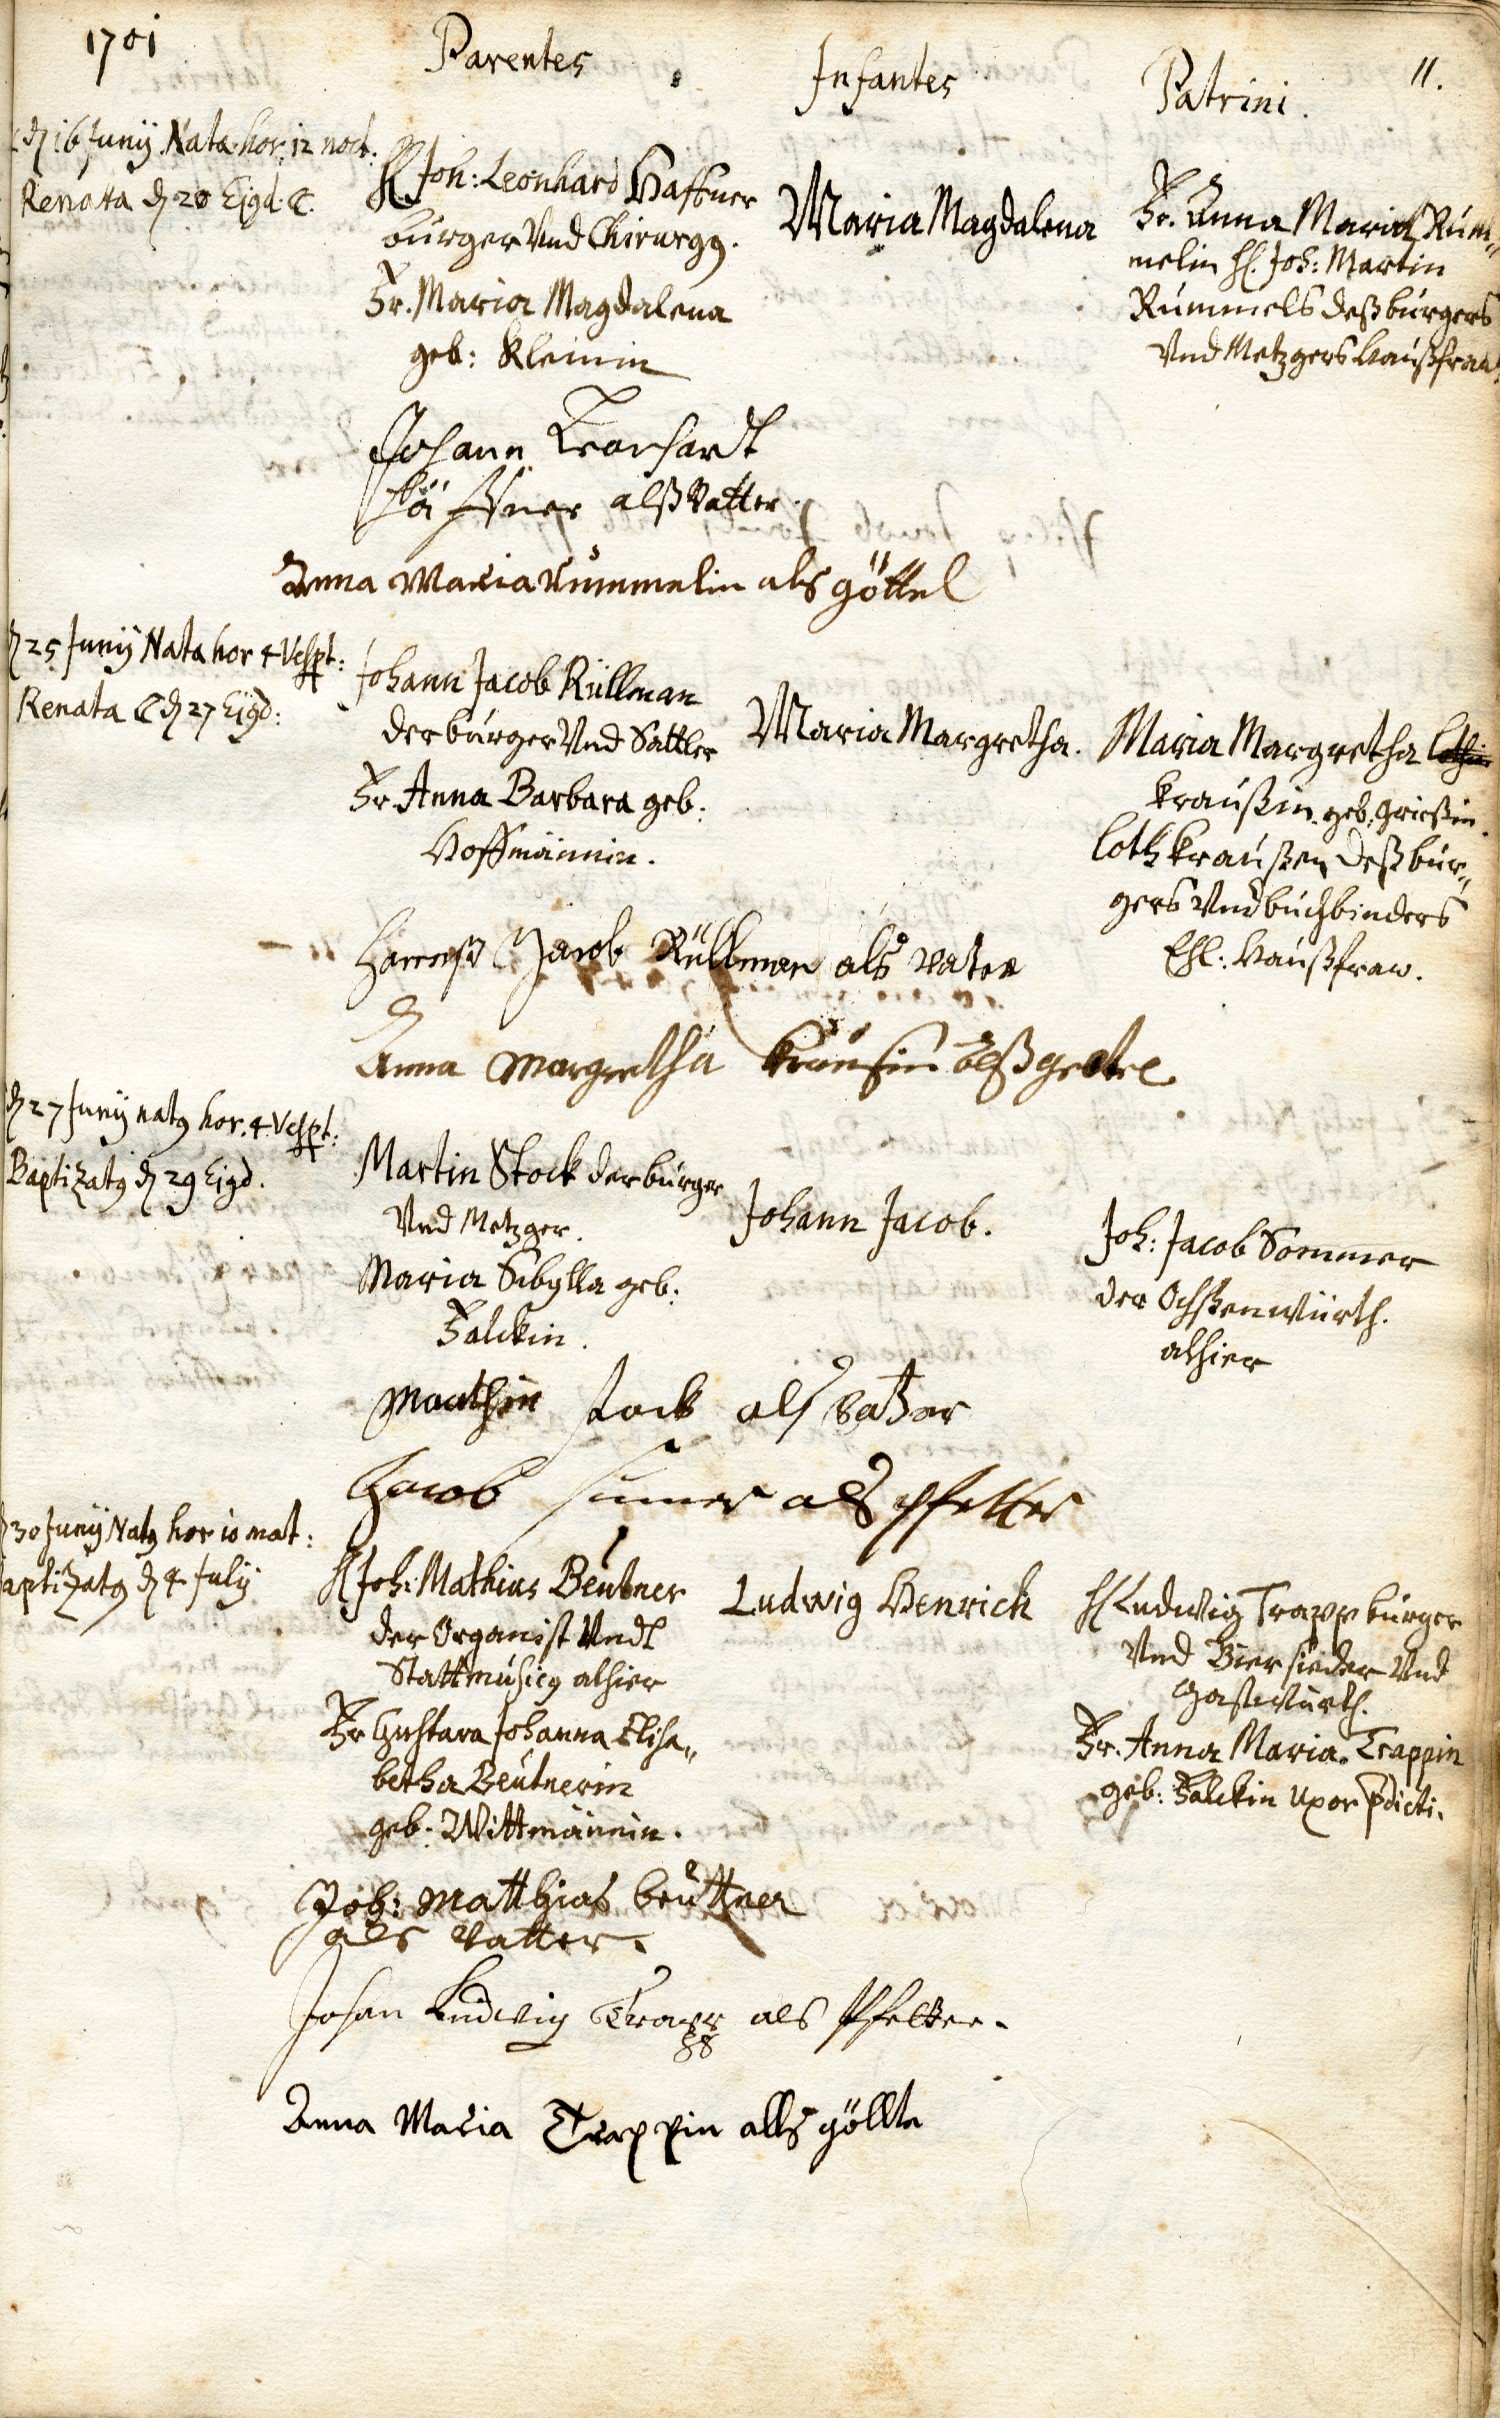 1701
Parentes
Infantes
Patrini.
11.
d 16 Junij Nata hor: 12 noct:
Renata d 20 Ejgd. ☾.
H Joh: Leonhard Haffner
burger Vnd Chirurg9.
Fr. Maria Magdalena
geb: Kleinin
Maria Magdalena
Fr. Anna Maria Rum„
melin H. Joh: Martin
Rummels deß burgers
Vnd Metzgers Haußfraw
Johann Leonhardt
Häffner alß Vatter
Anna Maria Rummelin als göttel
d 25 Junij Nata hor 4 Vespt:
Renata ☾ d 27 Ejgd:
Johann Jacob Rüllman
der burger Vnd Sattler
Fr. Anna Barbara geb:
Hoffmännin.
Maria Margretha.
Maria Margretha
Kraußin. geb. Grießin.
Loth Kraußen deß bur„
gers Vnd buchbinders
Ehl: Haußfraw.
Jacob Rüllman als vater
Anna Margretha Krausin alß gettel
d 27 Junij nat9 hor. 4. Vespt:
Baptizat9 d 29 Ejgd.
Martin Stock der burger
Vnd Metzger.
Maria Sibylla geb:
Falckin.
Johann Jacob.
Joh: Jacob Sommer
der Ochßenwürth.
alhier
Marthin stock als Vatter
Jacob sumer als pfetter
d 30 Junij Nat9 hor 10 mat:
aptizat9 d 4 July
H Joh: Mathias Beutner
der Organist Vndt
Stattmusic9 alhier
Fr Gustava Johanna Elisa„
betha Beutnerin
geb: Wittmännin.
Ludwig Henrich
H Ludwig Trapp burger
Vnd Biersieder Vnd
Gastwürth.
Fr. Anna Maria Trappin
geb: Falckin Uxor pdicti.
Joh: Matthias beuttner
als Vatter.
Johan Ludwig Trapp als Pfetter.
Anna Maria Trappin alls göttle